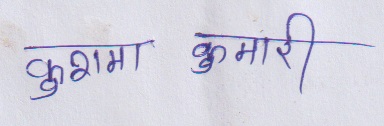 कुशमा कुमारी